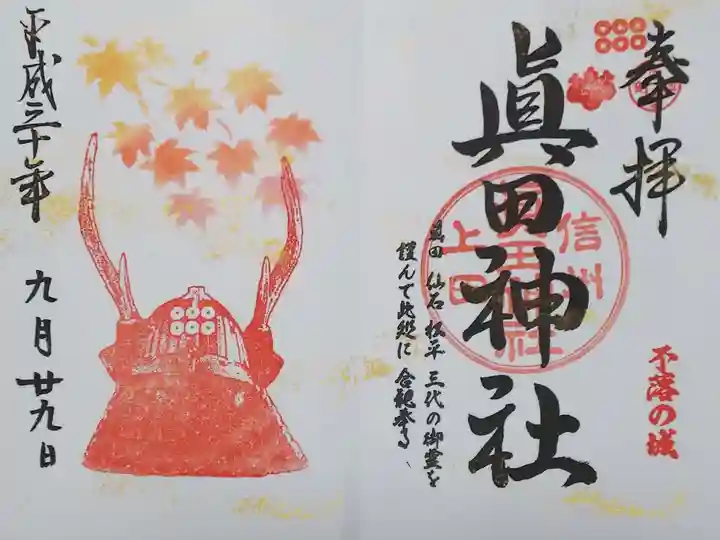 奉拝
眞田神社
信州
上田
眞田神社
不落の城
真田 仙石 松平 三代の御霊を
謹んで此処に 合祀奉る
平成三十年
九月廿九日